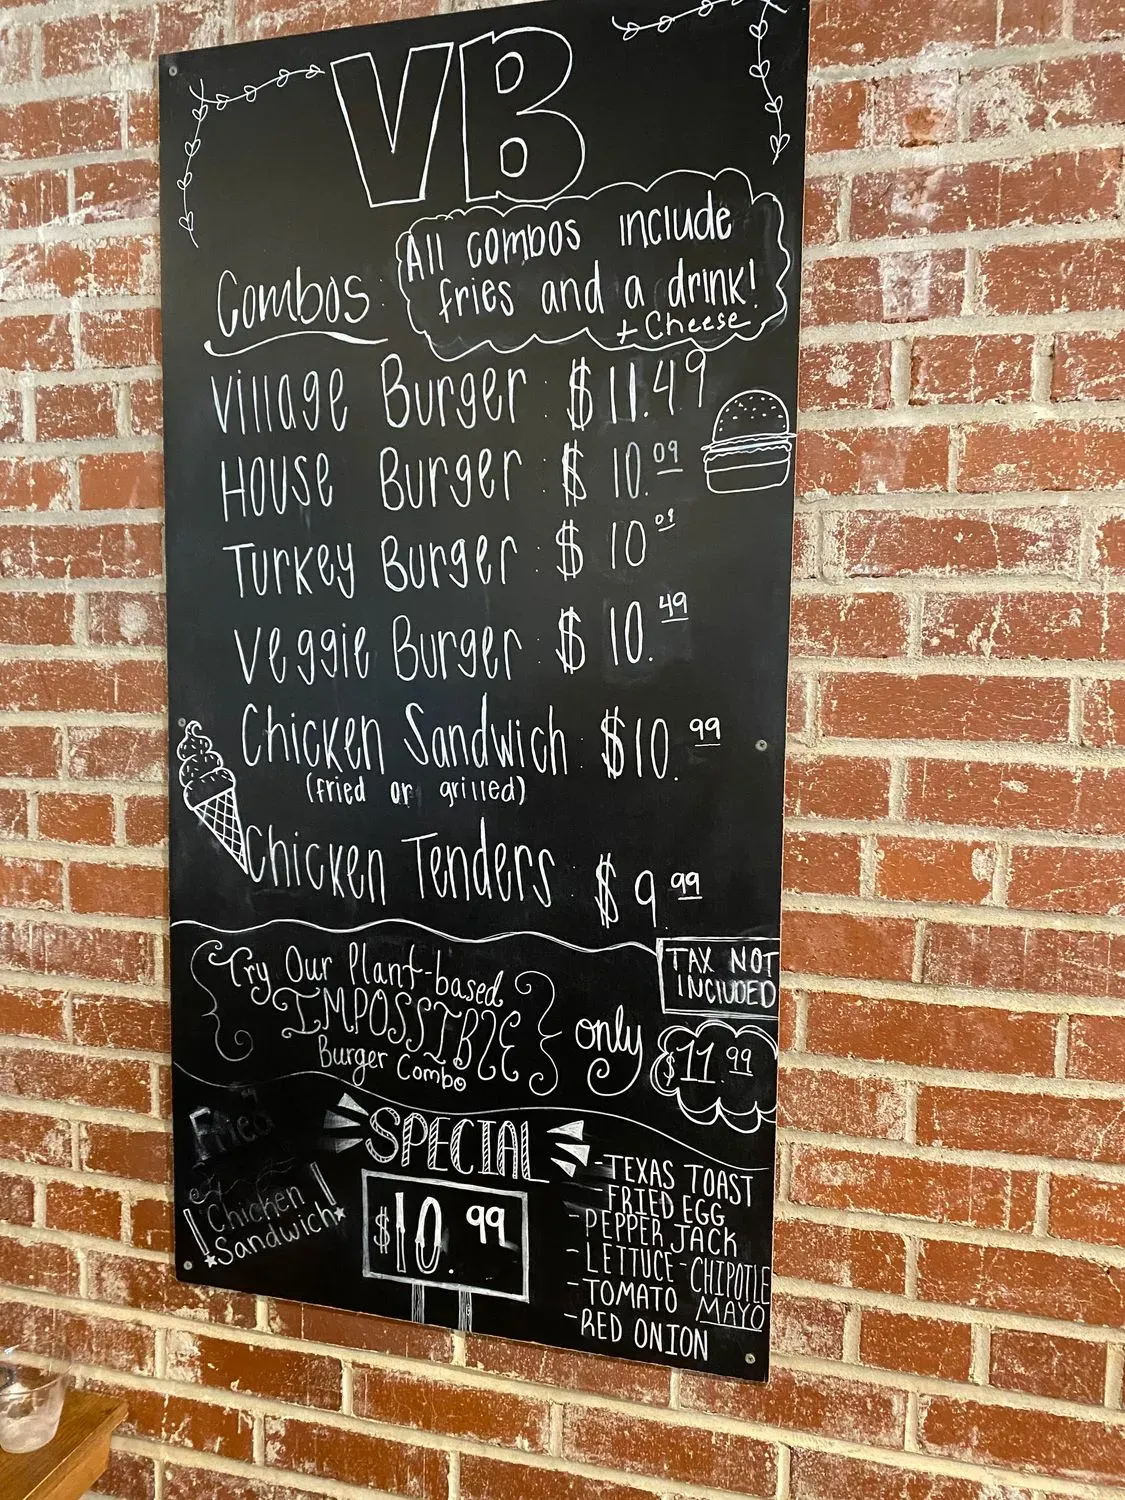 VB
All combos include
fries and a drink!
+ Cheese
Combos:
Village Burger : $11.49
House Burger : $10.09
Turkey Burger : $10 09
Veggie Burger : $10.49
Chicken Sandwich : $10.99
(fried or grilled)
Chicken Tenders : $9.99
TAX NOT
INCLUDED
Try Our Plant-based
IMPOSSIBLE
Burger Combo
only
$11.99
SPECIAL
Fried
Chicken
Sandwich
$10.99
-TEXAS TOAST
-FRIED EGG
-PEPPER JACK
-LETTUCE -CHIPOTLE
-TOMATO MAYO
-RED ONION